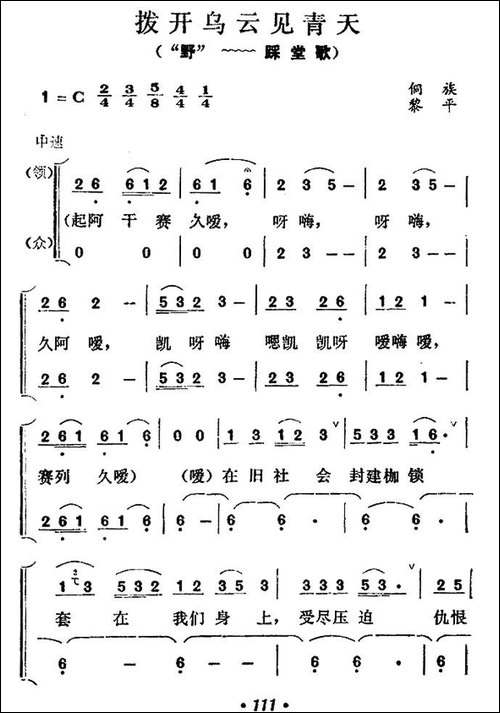 拨开乌云见青天
（“野”～～踩堂歌）
1 = C 2/4 3/4 5/8 4/4 1/4
侗 族
黎 平
中速
(领) 2 6 6 1 2 | 6 1 6 | 2 3 5 – | 2 3 5 –
(起阿干赛 久嗳， 呀嗨， 呀嗨，
(众) 0 0 | 0 0 | 2 3 – – | 2 3 – –
2 6 2 – | 5 3 2 3 – | 2 3 2 6 | 1 2 1 –
久阿嗳， 凯呀嗨 嗯凯凯呀 嗳嗨嗳，
2 6 2 – | 5 3 2 3 – | 2 3 2 6 | 1 2 1 –
2 6 1 6 1 6 | 0 0 | 1 3 1 2 3 ∨ | 5 3 3 3 1 6 · ∨
赛列 久嗳) (嗳)在旧社会 封建枷锁
2 6 1 6 1 6 | 6 – | 6 – 6 · | 6 · 6
1 3 5 3 2 | 1 2 2 3 5 3 | 3 3 3 5 3 · ∨ | 2 5
套 在 我们身上，受尽压迫 仇恨
6 – | 6 – – | 6 · 6 · | 6
· 111 ·